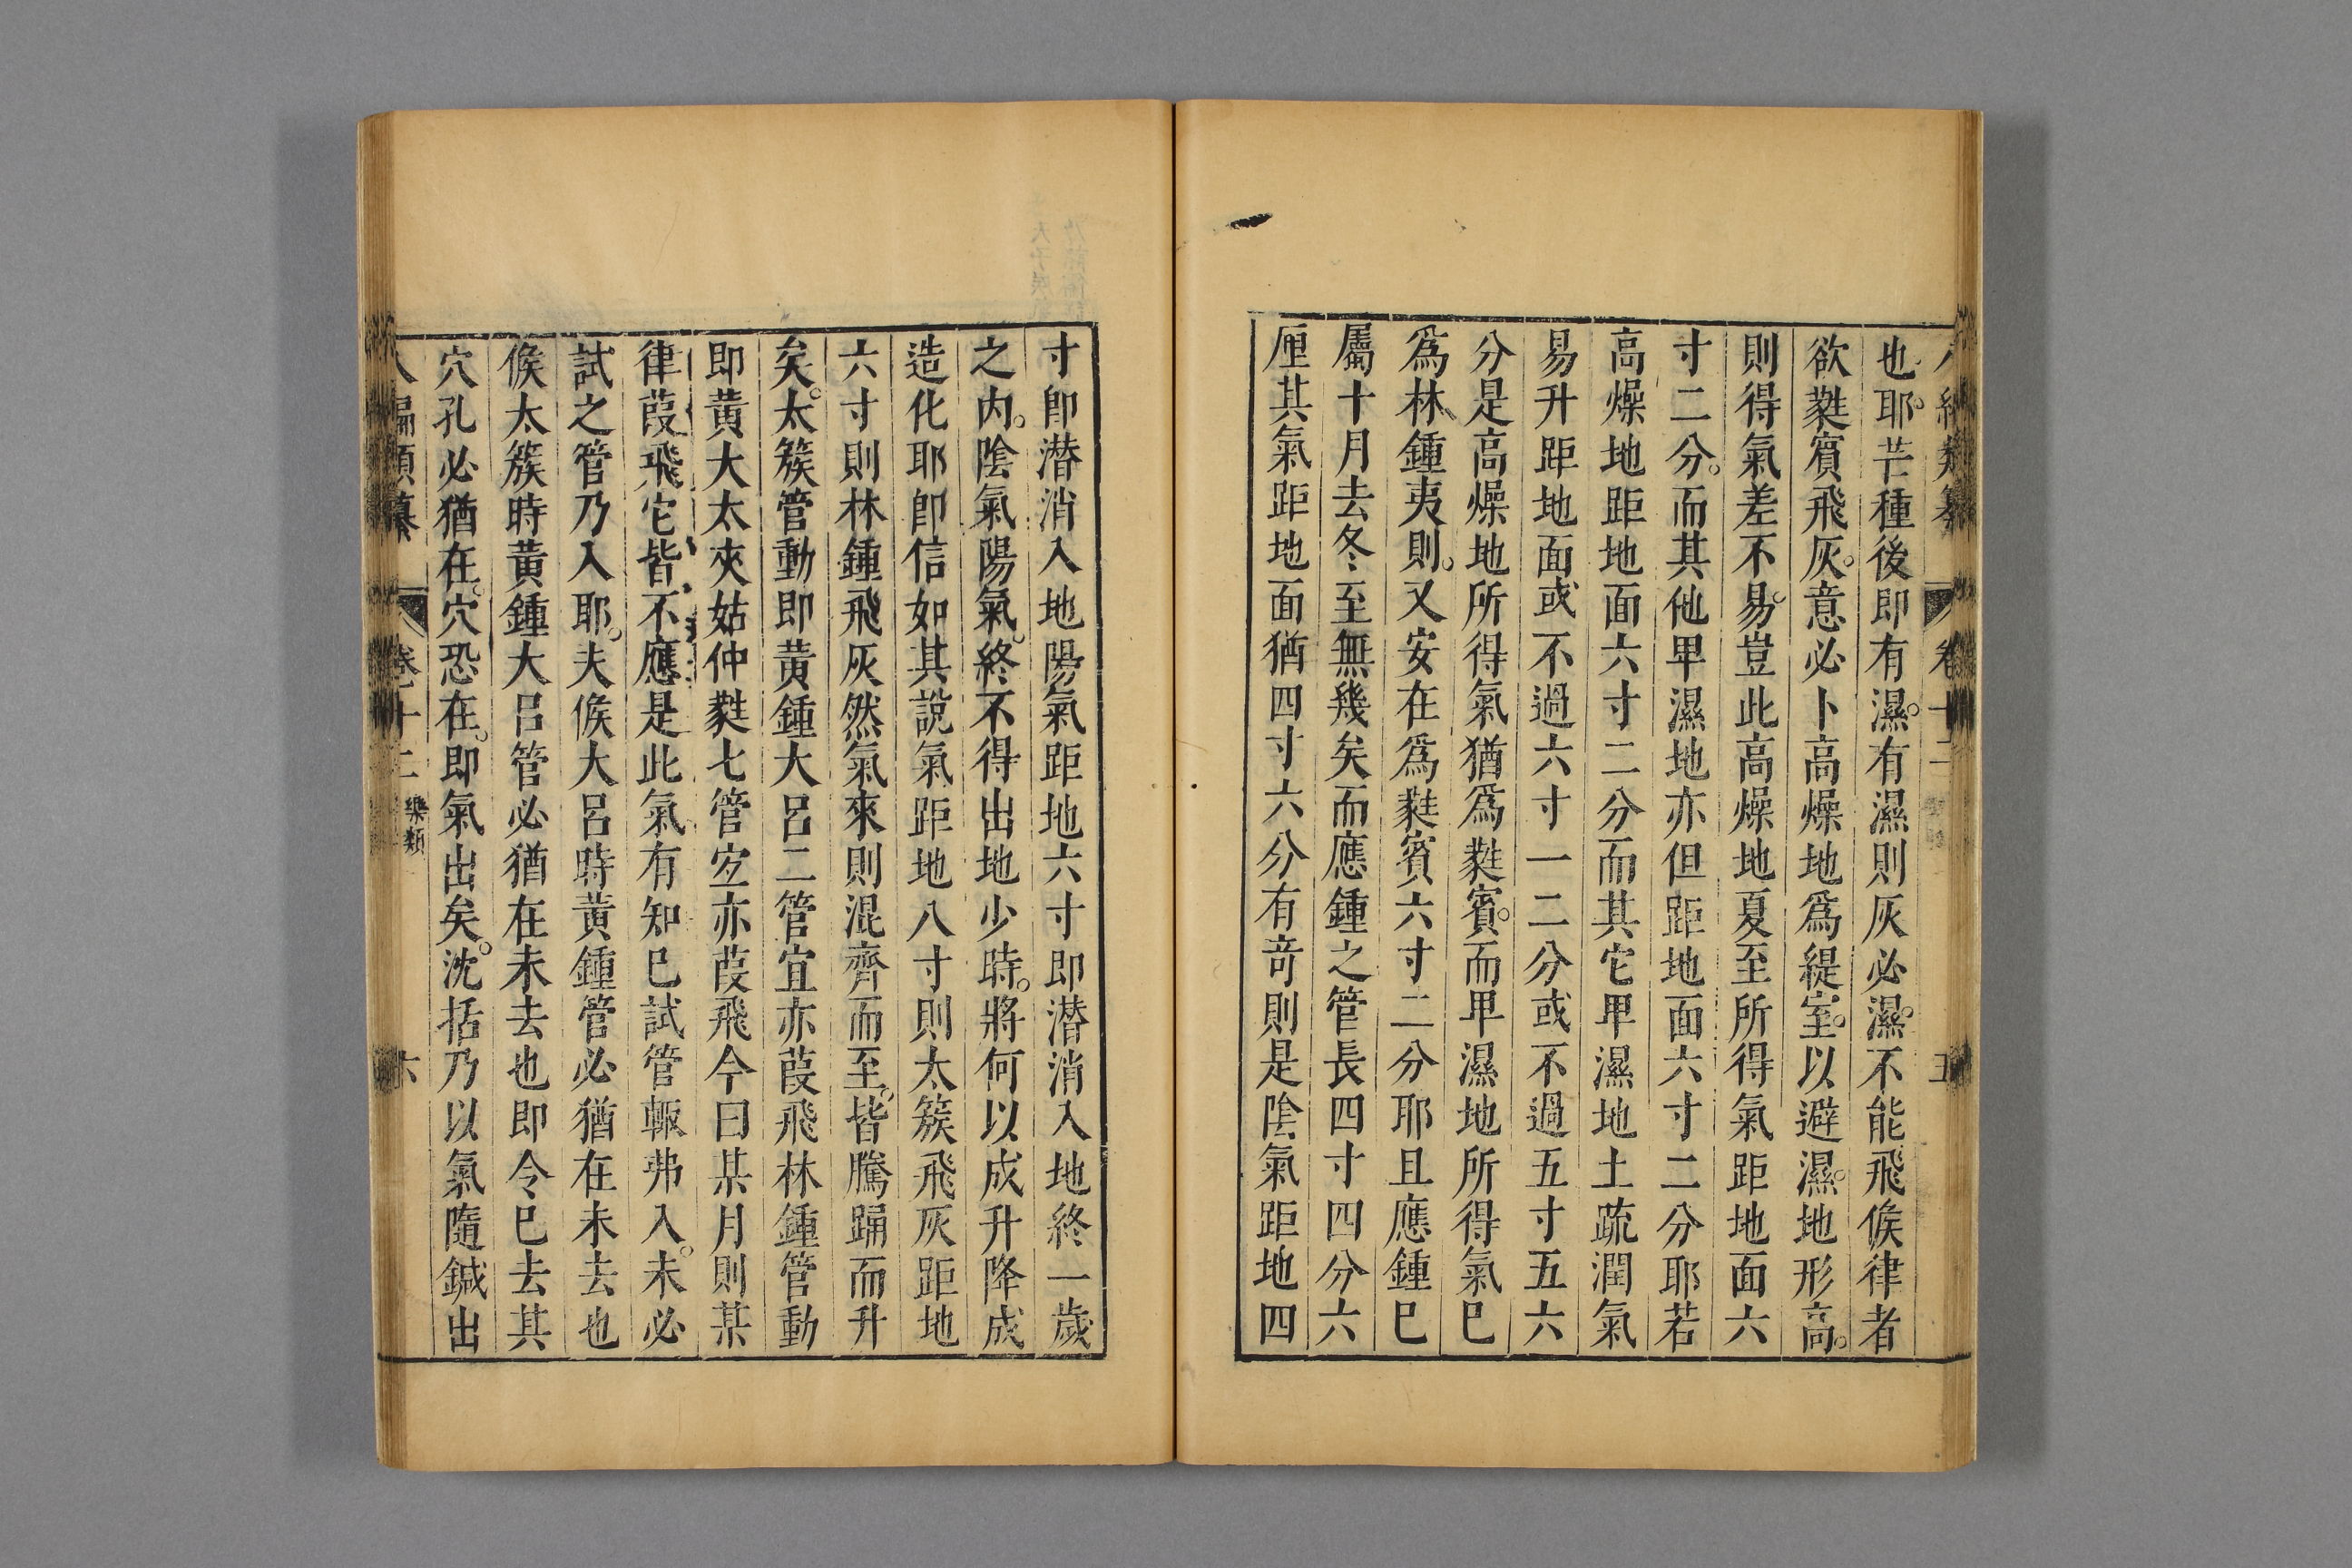 也耶芒種後即有濕有濕則灰必濕不能飛候律者
欲蕤賓飛灰意必卜高燥地爲緹室以避濕地形高
則得氣差不易豈此高燥地夏至所得氣距地面六
寸二分而其他卑濕地亦但距地面六寸二分耶若
高燥地距地面六寸二分而其它卑濕地土疏潤氣
易升距地面或不過六寸一二分或不過五寸五六
分是高燥地所得氣猶爲蕤賓而卑濕地所得氣巳
爲林鍾夷則又安在爲蕤賓六寸二分耶且應鍾巳
屬十月去冬至無幾矣而應鍾之管長四寸四分六
厘其氣距地面猶四寸六分有奇則是陰氣距地四
寸即潜消入地陽氣距地六寸即潜消入地終一歲
之内陰氣陽氣終不得出地少時將何以成升降成
造化耶即信如其說氣距地八寸則太簇飛灰距地
六寸則林鍾飛灰然氣來則混齊而至皆騰踊而升
矣太簇管動即黄鍾大呂二管宜亦葭飛林鍾管動
即黄大太夾姑仲蕤七管宜亦葭飛今曰某月則某
律葭飛它皆不應是此氣有知巳試管輙弗入未必
試之管乃入耶夫候大呂時黄鍾管必猶在未去也
候太簇時黄鍾大呂管必猶在未去也即令巳去其
穴孔必猶在穴恐在即氣出矣沈括乃以氣隨鍼出
卷十二 樂類 六